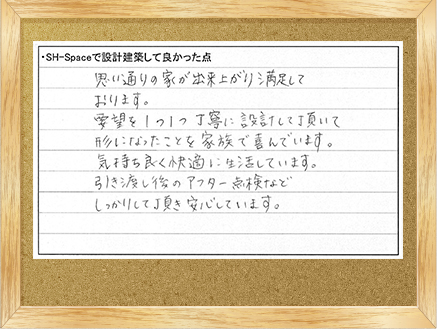 ・SH-Spaceで設計建築して良かった点
思い通りの家が出来上がり満足して
おります。
要望を1つ1つ丁寧に設計して頂いて
形になったことを家族で喜んでいます。
気持ち良く快適に生活しています。
引き渡し後のアフター点検など
しっかりして頂き安心しています。